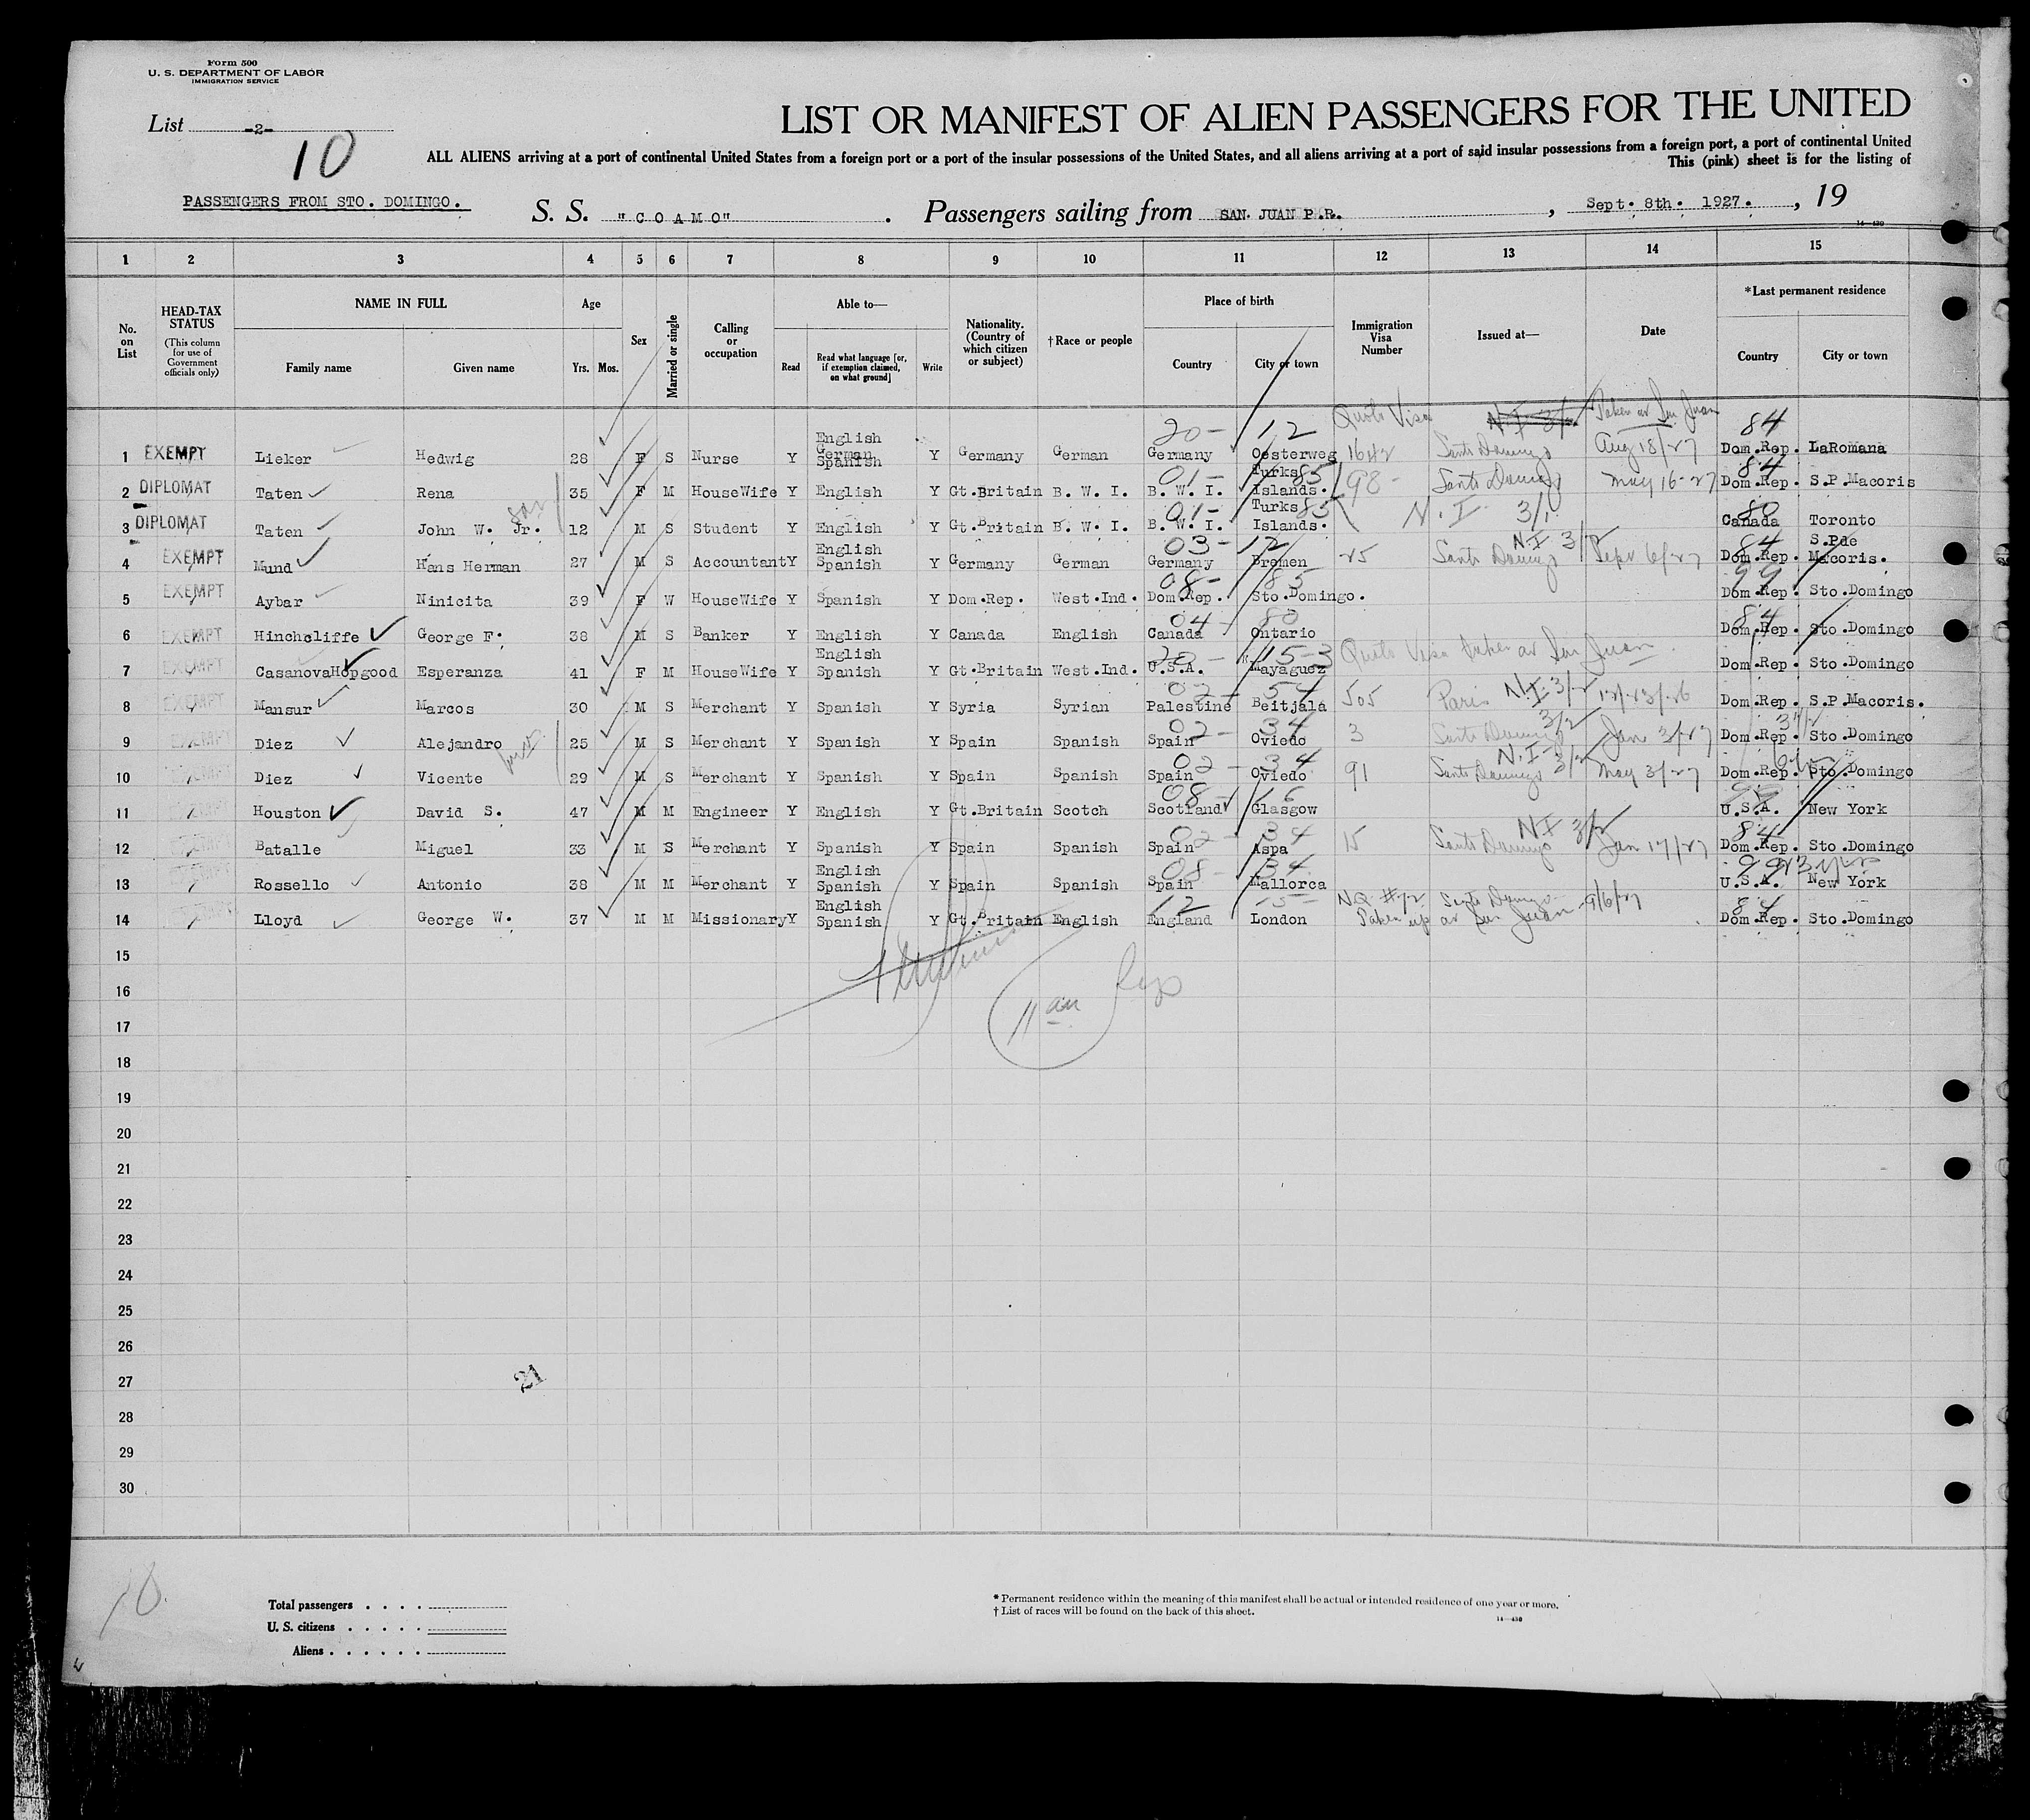 Form 500
U. S. DEPARTMENT OF LABOR
IMMIGRATION SERVICE
List -2-
10
LIST OR MANIFEST OF ALIEN PASSENGERS FOR THE UNITED
ALL ALIENS arriving at a port of continental United States from a foreign port or a port of the insular possessions of the United States, and all aliens arriving at a port of said insular possessions from a foreign port, a port of continental United
This (pink) sheet is for the listing of
PASSENGERS FROM STO. DOMINGO. S. S. "COAMO" . Passengers sailing from SAN JUAN P.R. , Sept. 8th. 1927. , 19
14—430
1 2 3 4 5 6 7 8 9 10 11 12 13 14 15
No. on List
HEAD-TAX STATUS
(This column for use of Government officials only)
NAME IN FULL
Family name Given name
Age
Yrs. Mos.
Sex
Married or single
Calling or occupation
Able to—
Read Read what language [or, if exemption claimed, on what ground] Write
Nationality. (Country of which citizen or subject)
†Race or people
Place of birth
Country City or town
Immigration Visa Number
Issued at—
Date
*Last permanent residence
Country City or town
20- 12 Quota Visa N.I 3/ Taken at San Juan 84
1 EXEMPT Lieker Hedwig 28 F S Nurse Y English German Spanish Y Germany German Germany Oesterweg 1642 Santo Domingo Aug 18/27 Dom.Rep. LaRomana
01- 85 84
2 DIPLOMAT Taten Rena 35 F M HouseWife Y English Y Gt.Britain B. W. I. B. W. I. Turks Islands. 98- Santo Domingo May 16-27 Dom.Rep. S.P.Macoris
01- 85 80
3 DIPLOMAT Taten John W. Jr. son 12 M S Student Y English Y Gt.Britain B. W. I. B. W. I. Turks Islands. N.I. 3/1 Canada Toronto
03- 12 N.I 3/ 84
4 EXEMPT Mund Hans Herman 27 M S Accountant Y English Spanish Y Germany German Germany Bremen 25 Santo Domingo Sept 6/27 Dom.Rep. S.Pde Macoris.
08- 85 99
5 EXEMPT Aybar Ninicita 39 F W HouseWife Y Spanish Y Dom.Rep. West.Ind. Dom.Rep. Sto.Domingo. Dom.Rep. Sto.Domingo
04- 80 84
6 EXEMPT Hinchcliffe George F. 38 M S Banker Y English Y Canada English Canada Ontario Dom.Rep. Sto.Domingo
20- 15-3 Quota Visa taken at San Juan.
7 EXEMPT CasanovaHopgood Esperanza 41 F M HouseWife Y English Spanish Y Gt.Britain West.Ind. U.S.A. Mayaguez Dom.Rep. Sto.Domingo
02- 54 N.I 3/2
8 EXEMPT Mansur Marcos 30 M S Merchant Y Spanish Y Syria Syrian Palestine Beitjala 505 Paris 12/23/26 Dom.Rep. S.P.Macoris.
02- 34 3/2
9 EXEMPT Diez Alejandro 25 M S Merchant Y Spanish Y Spain Spanish Spain Oviedo 3 Santo Domingo Jan 3/27 Dom.Rep. Sto.Domingo
02- 34 N.I- 3/2
10 EXEMPT Diez Vicente 29 M S Merchant Y Spanish Y Spain Spanish Spain Oviedo 91 Santo Domingo May 3/27 Dom.Rep. Sto.Domingo
08- 16
11 EXEMPT Houston David S. 47 M M Engineer Y English Y Gt.Britain Scotch Scotland Glasgow U.S.A. New York
02- 34 N I 3/2 84
12 EXEMPT Batalle Miguel 33 M S Merchant Y Spanish Y Spain Spanish Spain Aspa 15 Santo Domingo Jan 17/27 Dom.Rep. Sto.Domingo
08- 34 99
13 EXEMPT Rossello Antonio 38 M M Merchant Y English Spanish Y Spain Spanish Spain Mallorca U.S.A. New York
12 15- NQ #72 Santo Domingo 9/6/27 84
14 EXEMPT Lloyd George W. 37 M M Missionary Y English Spanish Y Gt.Britain English England London Taken up at San Juan Dom.Rep. Sto.Domingo
15
16
11 am
17
18
19
20
21
22
23
24
25
26
27
21
28
29
30
10
Total passengers . . . .
U. S. citizens . . . . .
Aliens . . . . . .
* Permanent residence within the meaning of this manifest shall be actual or intended residence of one year or more.
† List of races will be found on the back of this sheet.
14—430